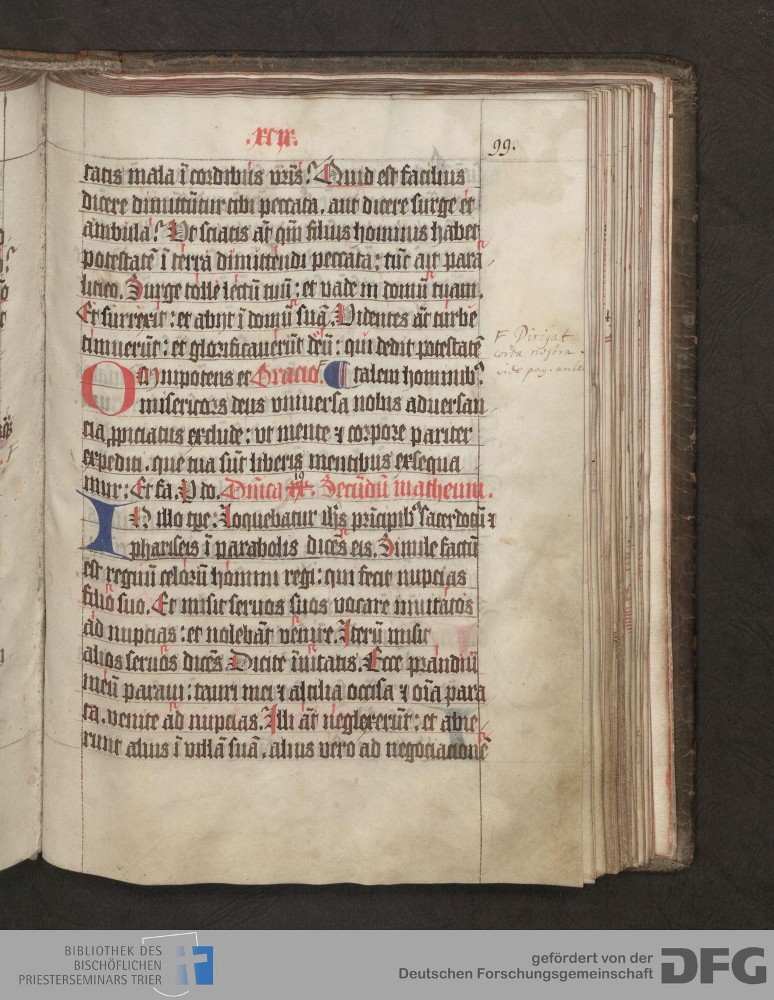 .xcix.
99.
tatis mala ī cordibus vr̄is? Quid est facilius
dicere dimittūtur tibi peccata. aut dicere surge et
ambula? Ut sciatis aūt qm̄ filius hominis habet
potestatē ī terra dimittendi peccata: tūc ait para
litico. Surge tolle lectū tuū: et vade in domū tuam.
Et surrexit: et abijt ī domū suā. Videntes aūt turbe
timuerūt: et glorificauerūt deū: qui dedit potestatē
Omnipotens et Oracio. talem hominib?
misericors deus vniuersa nobis aduersan
cia ꝓpiciatus exclude: vt mente ⁊ corpore pariter
expediti. que tua sūt liberis mentibus exsequa
mur: Et fa. P do. Dn̄ica xx. Secūdū matheum.
19
IN illo tp̄e: Loquebatur ih̄s prīcipib? sacerdotū ⁊
phariseis ī parabolis dicēs eis. Simile factū
est regnū celorū homini regi: qui fecit nupcias
filio suo. Et misit seruos suos vocare inuitatos
ad nupcias: et nolebāt venire. Iterū misit
alios seruos dicēs. Dicite īuitatis. Ecce prandiū
meū paraui: tauri mei ⁊ altilia occisa ⁊ oīa para
ta. venite ad nupcias. Illi aūt neglexerūt: et abie
runt alius ī villā suā. alius vero ad negociacionē
F Dirigat
corda nostra
vide pag.
BIBLIOTHEK DES
BISCHÖFLICHEN
PRIESTERSEMINARS TRIER
gefördert von der
Deutschen Forschungsgemeinschaft
DFG